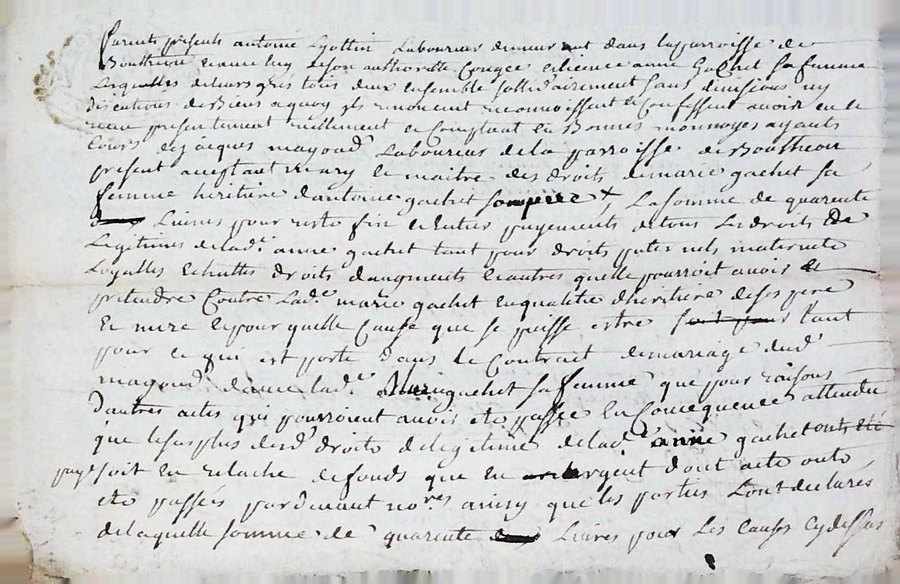 furent présents antoine Gottin Laboureur demeurant dans la parroisse de
Bouthéon et avec luy de son authorité Congée et licence anne gachet sa femme
Lesquelles de leurs grés tous deux ensemble sollidairement sans division ny
discutions de Biens a quoy ils renoncent reconnoissent et Confessent avoir eu et
reçu présentement reellement et Comptant en Bonnes monnoyes ayants
Cours de jacques magaud Laboureur de la parroisse de Bouthéon
présent acceptant mary et maitre des droits de marie gachet sa
femme héritière d'antoine gachet son père + La somme de quarente
Livres pour reste fin et entier payements de tous Les droits de
Legitimes de lad.e anne gachet tant pour droits paternels maternels
Loyalles Echuttes droits d'augments et autres quelle pourroit avoir et
prétendre Contre Lad.e marie gachet en qualité d'héritière de ses père
et mere et pour quelle Cause que se puisse estre tant
pour ce qui est porté dans le Contract de mariage dud.
magaud et de lad.e marie gachet sa femme que pour raisons
d'autres actes qui pourroient avoir été passés En Concequence attendu
que le surplus desd. droits de legitime de lad.e anne gachet onts été
payés soit en relache de fonds que en argent dont acte onts
été passés pardevant no.res ainsy que les parties L'ont declarés
de laquelle somme de quarente Livres pour Les Causes cy dessus